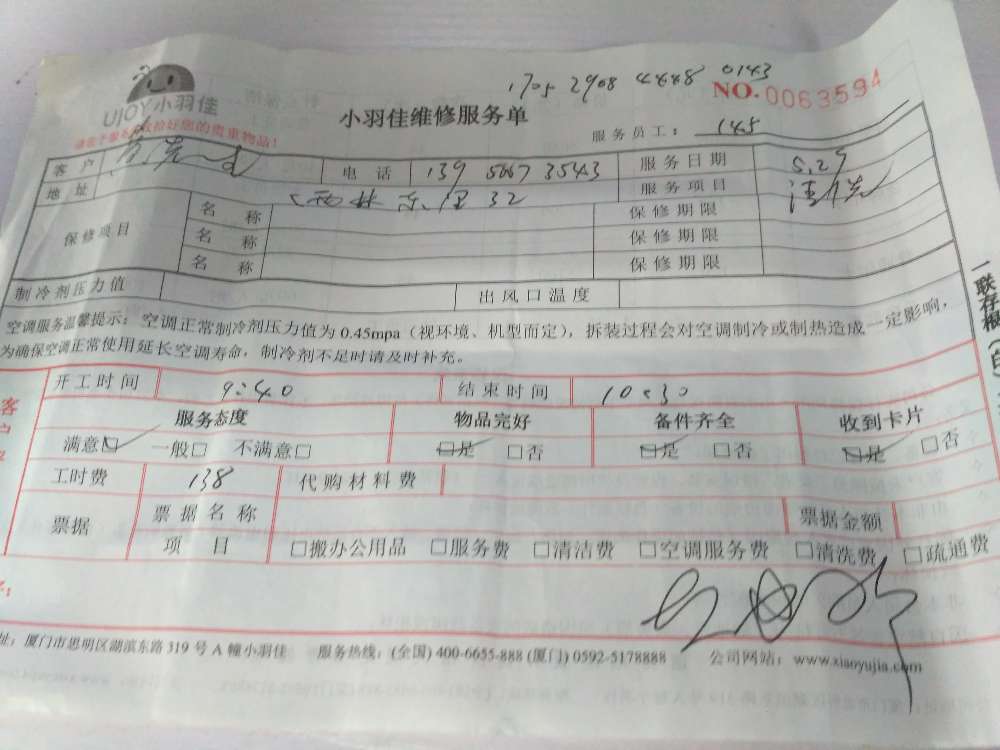 1705 2908 4448 0143
UJOY小羽佳
NO.0063594
小羽佳维修服务单
您的贵重物品！
服务员工： 145
客户 电话 139 5067 3543 服务日期 5.29
地址 西林东里32 服务项目 清洗
保修项目 名称 保修期限
名称 保修期限
名称 保修期限
制冷剂压力值 出风口温度
空调服务温馨提示：空调正常制冷剂压力值为0.45mpa（视环境、机型而定），拆装过程会对空调制冷或制热造成一定影响，
为确保空调正常使用延长空调寿命，制冷剂不足时请及时补充。
一联存根
开工时间 9:40 结束时间 10:30
客户
服务态度 物品完好 备件齐全 收到卡片
满意☑ 一般□ 不满意□ ☑是 □否 ☑是 □否 ☑是 □否
工时费 138 代购材料费
票据 票据名称 票据金额
项目 □搬办公用品 □服务费 □清洁费 □空调服务费 □清洗费 □疏通费
址：厦门市思明区湖滨东路319号A幢小羽佳 服务热线：(全国) 400-6655-888 (厦门) 0592-5178888 公司网站：www.xiaoyujia.com